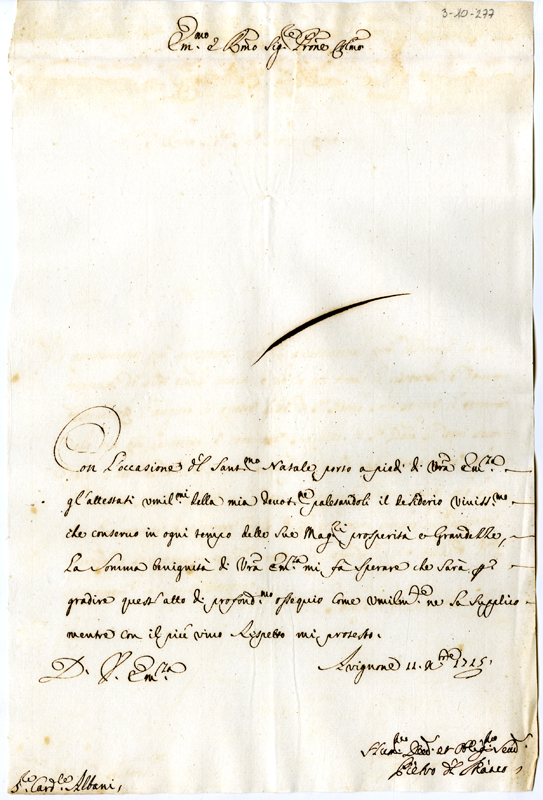 3-10-277
Em.mo e R.mo Sig.re P̃rone Col.mo
Con l'occasione del Sant.mo Natale porto a piedi di Vr̃a Em.za
gl'attestati umil.mi della mia devot.ne palesandoli il desiderio viviss.mo
che conservo in ogni tempo delle sue Mag.ri prosperità e Grandezze,
La Somma benignità di Vr̃a Em.za mi fa sperare che sarà p
gradire quest'atto di profond.mo ossequio come umilm.te ne la supplico
mentre con il più vivo Rispetto mi protesto.
D. V. Em.za
Avignone 11. Xbre 1715,
Hum. Dev. et Oblig. Serv.
Pietro de
S.re Card.le Albani,